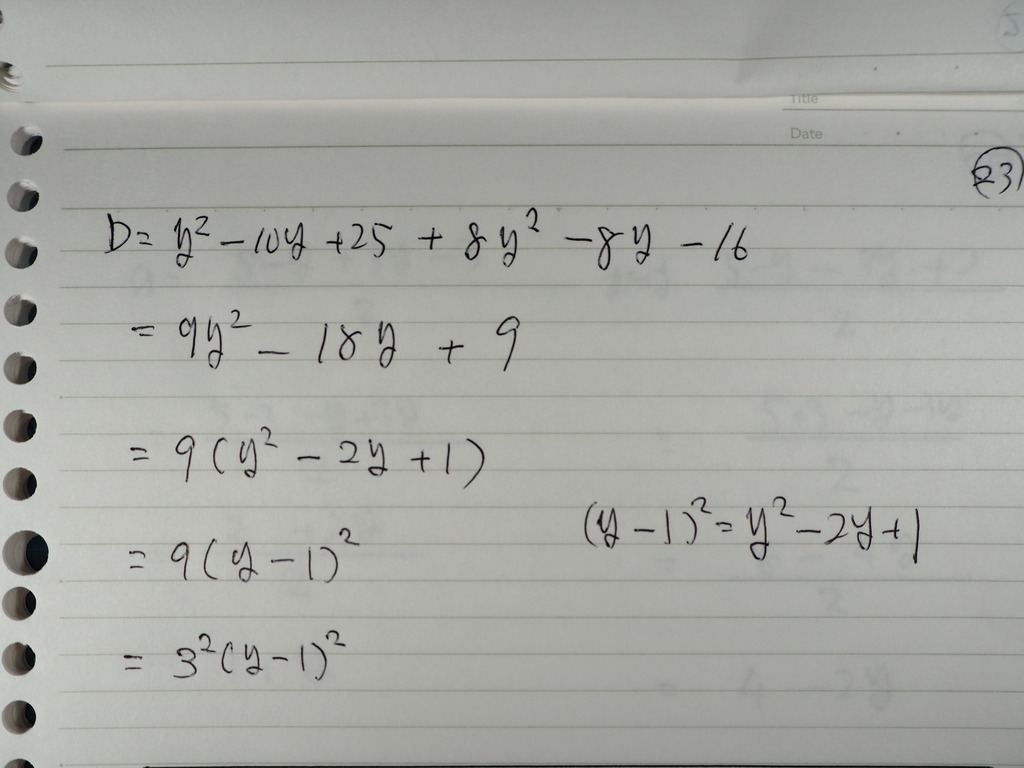 Title
Date
(23)
D = y² - 10y + 25 + 8y² - 8y - 16
= 9y² - 18y + 9
= 9(y² - 2y + 1)
(y - 1)² = y² - 2y + 1
= 9(y - 1)²
= 3²(y - 1)²